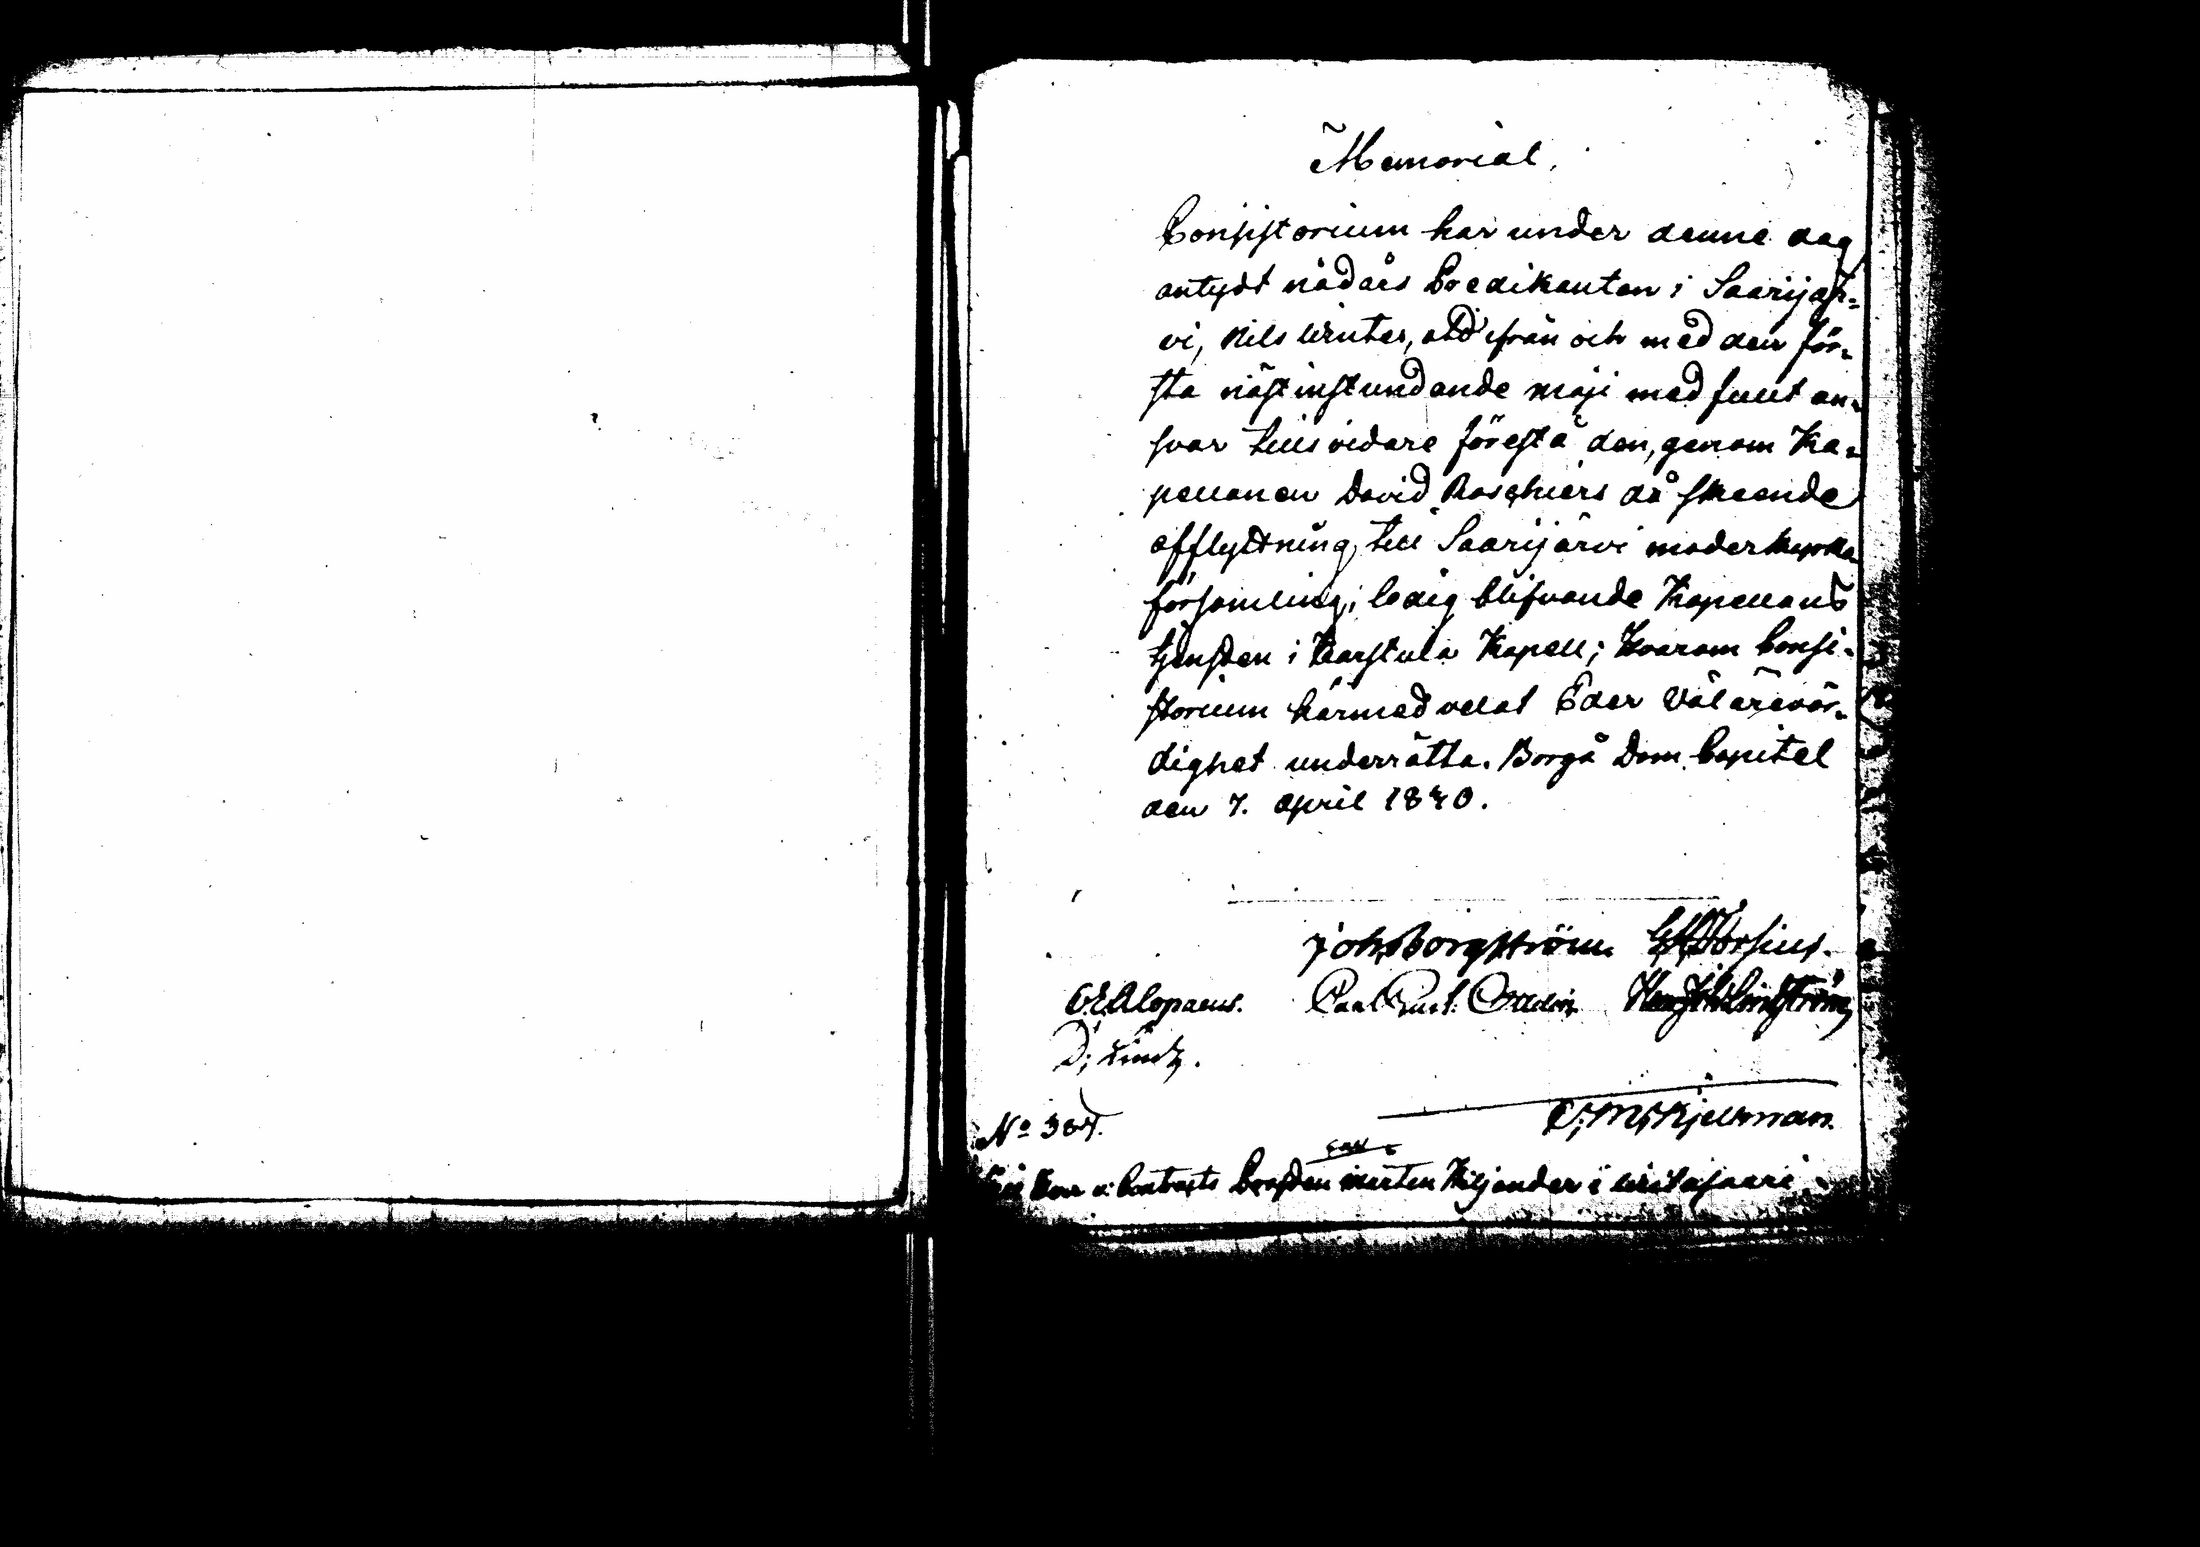 Memorial.
Consistorium har under denne dag
antydt nådårs Predikanten i Saarijär-
vi, Nils Winter, att ifrån och med den för-
sta nästinstundande Maji med fullt an-
svar tillsvidare förestå den, genom Ka-
pellanen David Roschiers då skeende
afflyttning till Saarijärvi moderkyrko
församling, ledig blifvande Kapellans
tjensten i Karstula Kapell; hvarom Consi-
storium härmed velat Eder Välärevör-
dighet underrätta. Borgå Dom Capitel
den 7. April 1840.
Joh. Borgström. Forsius.
C.E. Alopaeus. Paul Gust. Ordin. Lindström
D; Lindh.
C; M; Kjellman.
No 387.
Contracts Prosten Mårten Kiljander i Viitasaari